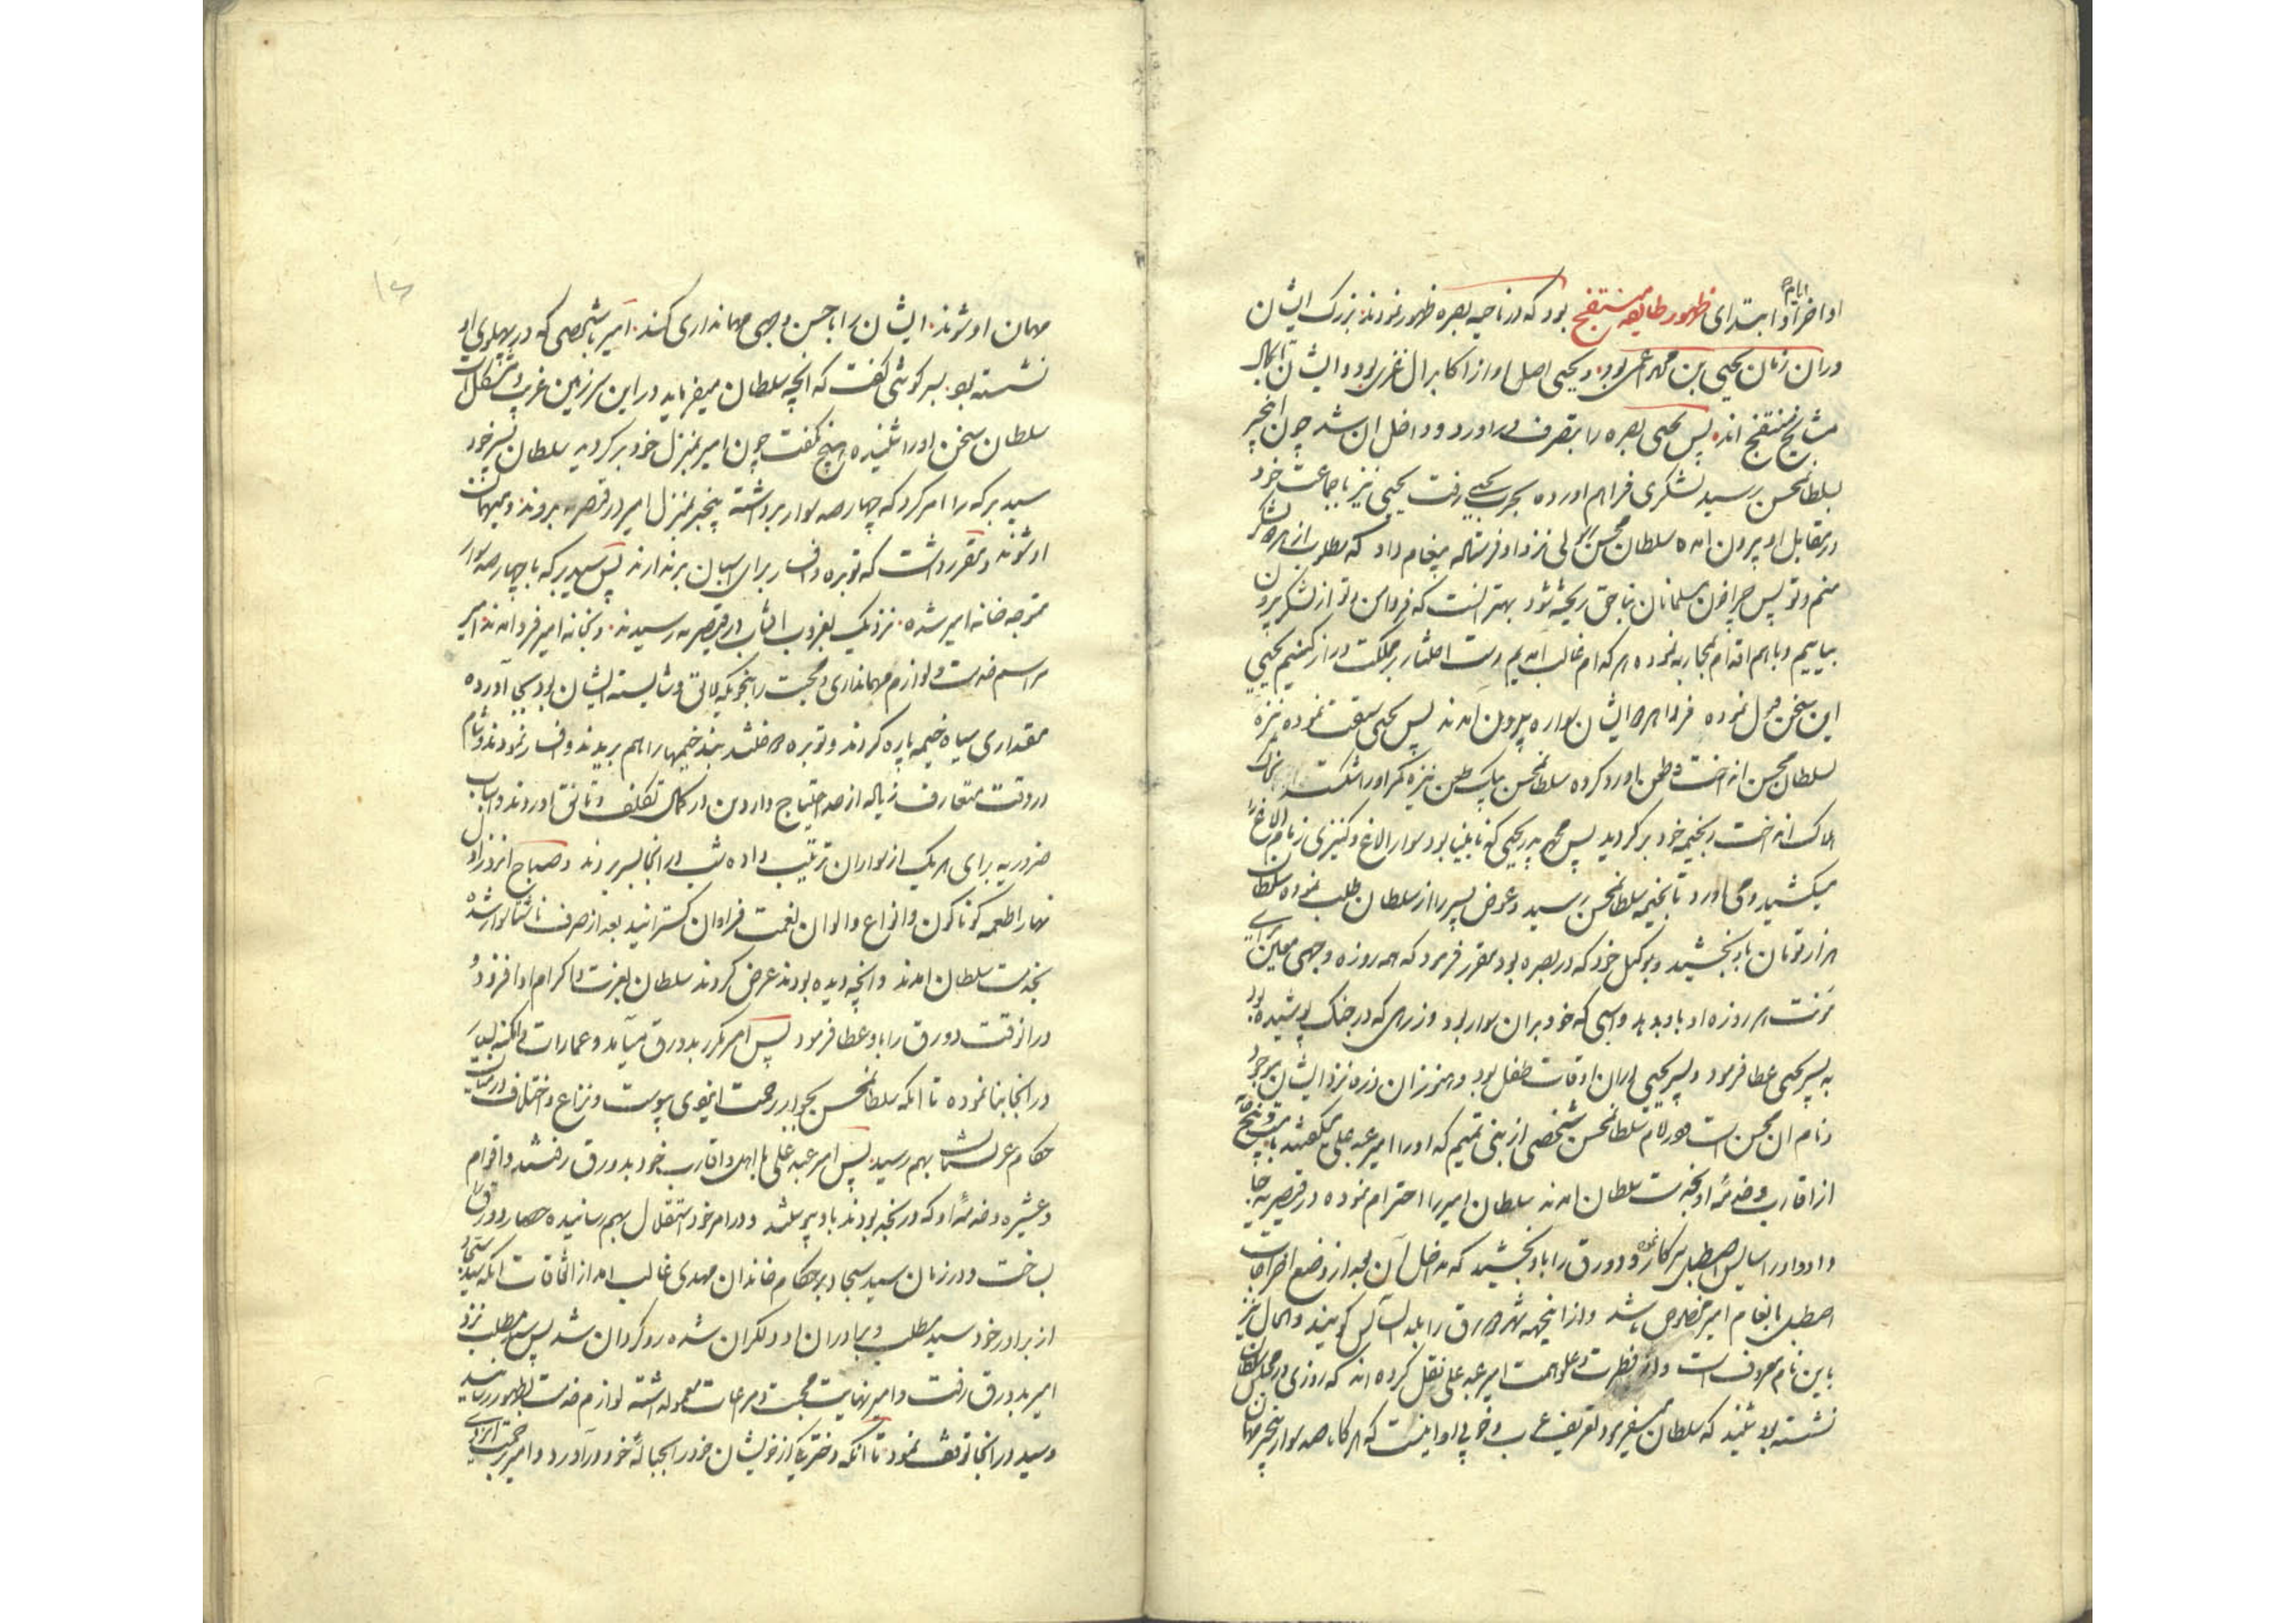 ایام
اواخر او ابتدای ظهور طایفه منتفج بود که در ناحیه بصره ظهور نمودند بزرک ایشان
در ان زمان یحیی بن محمد اعمی بود و یحیی اصل او از اکابر ال غزی بود و ایشان تا حال
مشایخ منتفج اند پس یحیی بصره را بتصرف در اورد و داخل ان شد چون این خبر
بسلطان محسن رسید لشکری فراهم اورده بحرب یحیی رفت یحیی نیز با جماعت خود
در مقابل او بیرون امده سلطان محسن ایلچی نزد او فرستاده پیغام داد که مطلوب از هر دو لشکر
منم و تو پس چرا خون مسلمانان بناحق ریخته شود بهتر انست که فردا من و تو از لشکر بیرون
بیاییم و با هم اقدام بمحاربه نموده هر کدام غالب امدیم دست اختیار بر مملکت دراز کنیم یحیی
این سخن قبول نموده فردا هر دو ایشان سواره بیرون امدند پس یحیی سبقت نموده نیزه
بسلطان محسن انداخت و طعن باو رد کرده سلطان محسن بیک طعن نیزه کمر او را شکست بخاک
هلاک انداخت و بخیمه خود بر کردید پس محمد پدر یحیی که نابینا بود سوار الاغ و کنیزی زمام الاغ
میکشید و می اورد تا بخیمه سلطان محسن رسید و عوض پسر را از سلطان طلب نموده سلطان
هزار تومان باو بخشید و بوکیل خود که در بصره بود مقرر فرمود که همه روزه وجهی معین برای
مؤنت هر روزه او باو بدهد و اسبی که خود بران سوار بود و زرهی که در جنک پوشیده بود
به پسر یحیی عطا فرمود و پسر یحیی در ان اوقات طفل بود و هنوز ان زره نزد ایشان موجود
و نام ان محسن است سلطان محسن شخصی از بنی تمیم که او را امیر عبد علی میکفتند با بیست و پنج خانه
از اقارب و خدمه او بخدمت سلطان امدند سلطان امیر را احترام نموده در قیصریه جا
داد و او را سایس اصطبل سرکار نمود و دورق را باو بخشید که مداخل آن بعد از وضع اخراجات
اصطبل بانعام امیر مخصوص باشد و از اینجهه شهر دورق را بلد السایس کویند و الحال نیز
باین نام معروف است و از فطرت و علو همت امیر عبد علی نقل کرده اند که روزی در مجلس سلطان
نشسته بود شنید که سلطان میفرمود تعریف عرب و خوبی او اینست که هر کاه صد سوار بیخبر مهمان
مهمان او شوند ایشان را باحسن وجهی مهمانداری کند امیر بشخصی که در پهلوی او
نشسته بود بسرکوشی کفت که انچه سلطان میفرماید در این سرزمین غریب و مشکل است
سلطان سخن او را شنیده هیچ نکفت چون امیر بمنزل خود بر کردید سلطان پسر خود
سید برکه را امر کرد که چهار صد سوار برداشته بیخبر بمنزل امیر در قیصریه بروند و میهمان
او شوند و مقرر داشت که توبره و افسار برای اسبان برندارند پس سید برکه با چهار صد سوار
متوجه خانه امیر شده نزدیک بغروب افتاب در قیصریه رسیدند و بخانه امیر فرود امدند امیر
مراسم خدمت و لوازم مهمانداری و محبت را بنحویکه لایق و شایسته ایشان بود بجا آورده
مقداری سیاه خیمه پاره کردند و توبره دوختند بند خیمها را هم بریدند و افسار نمودند و شام
در وقت متعارف زیاده از حد احتیاج واردین در کمال تکلف و تانق اوردند و اسباب
ضروریه برای هر یک از سواران ترتیب داده شب در انجا بسر بردند و صباح انروز اول
نهار اطعمه کوناکون و انواع و الوان نعمت فراوان کسترانید بعد از صرف ناشتا سوار شده
بخدمت سلطان امدند و انچه دیده بودند عرض کردند سلطان بعزت و اکرام او افزود و
در انوقت دورق را باو عطا فرمود پس امیر مکرر بدورق میآید و عمارات و امکنه بسیار
در انجا بنا نموده تا انکه سلطان محسن بجوار رحمت ایزدی پیوست و نزاع و اختلاف در میان
حکام عربستان بهم رسید پس امیر عبد علی با اهل و اقارب خود بدورق رفتند و اقوام
و عشیره و خدمه او که در نجد بودند باو پیوستند و در امر خود استقلال بهم رسانیده حصار دورق را
ساخت و در زمان سید سجاد بر حکام خاندان مهدی غالب امد از اتفاقات انکه سید سجاد
از برادر خود سید مطلب و برادران او دلکران شده رو کردان شد پس سید مطلب نزد
امیر بدورق رفت و امیر نهایت محبت و مراعات معمول داشته لوازم خدمت بظهور رسانید
و سید در انجا توقف نمود تا آنکه دختر یکی از خویشان خود را بحباله خود در آورد و امیر برحمت ایزدی